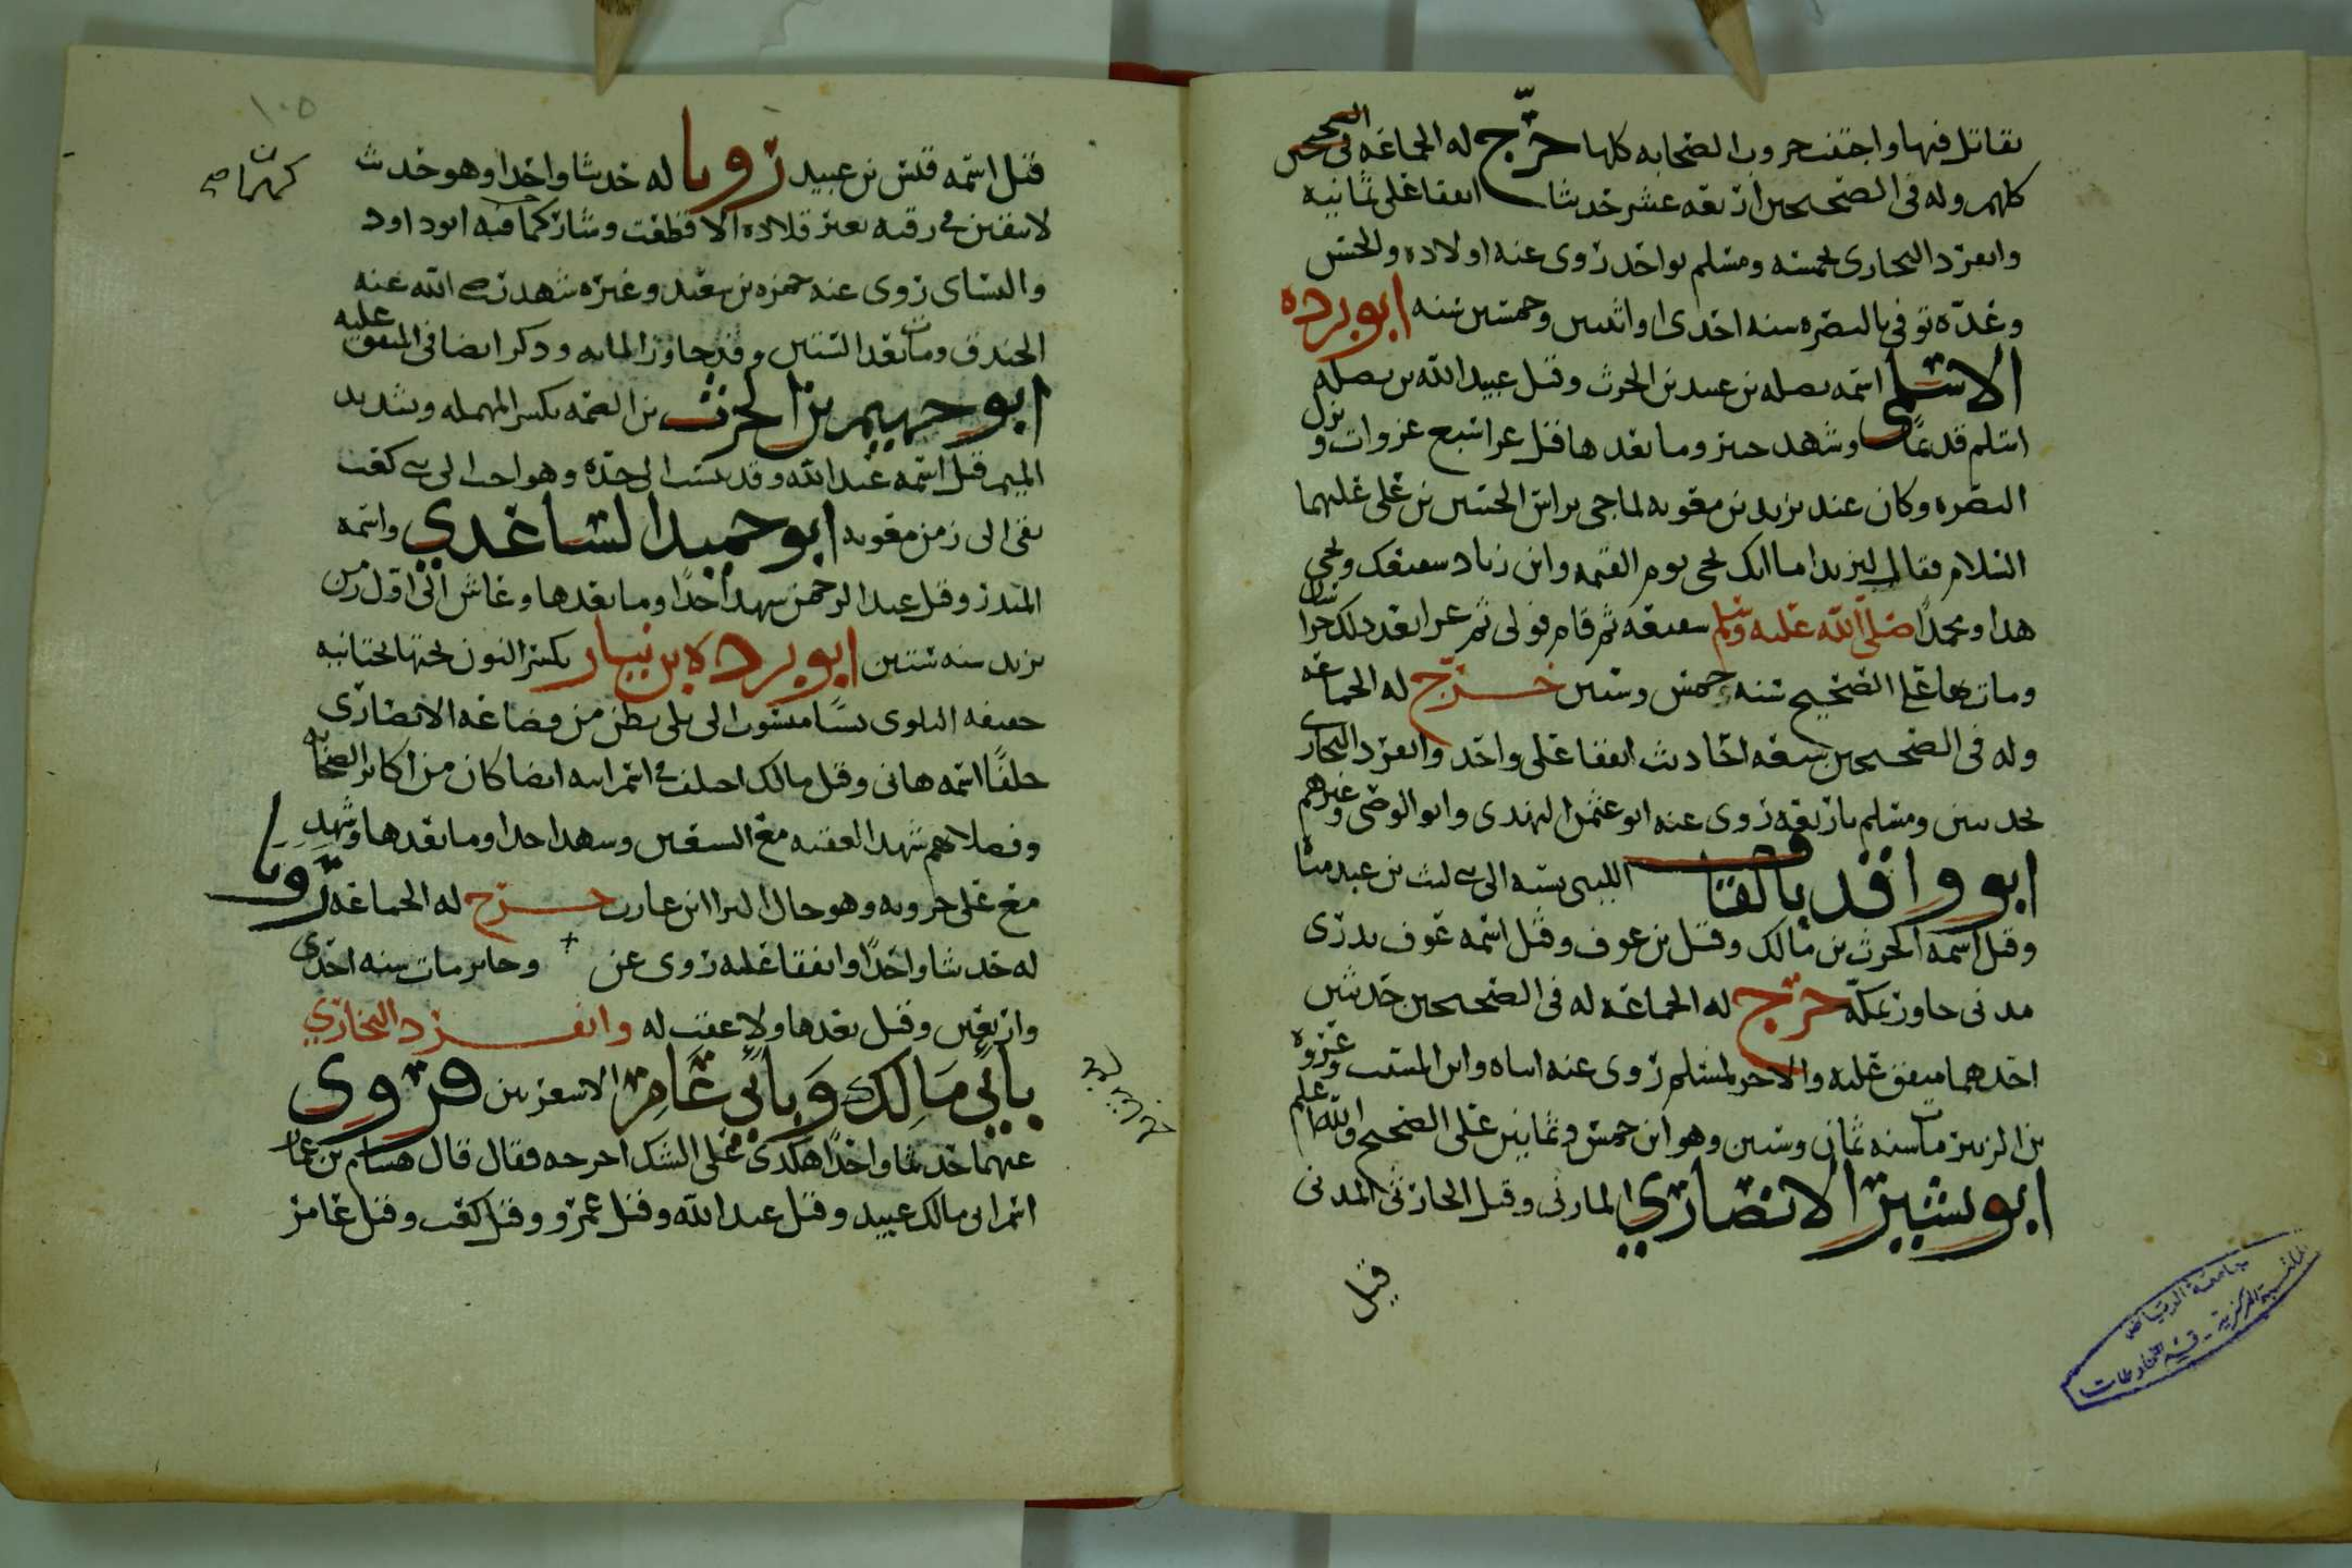 يقاتل فيها واجتنب حروب الصحابه كلها خرّج له الجماعه في الصحيحين
كلهم وله في الصحيحين اربعه عشر حديثا اتفقا على ثمانيه
وانفرد البخارى بخمسه ومسلم بواحد روى عنه اولاده والحسن
وعدّه توفي بالبصره سنه احدى او اثنين وخمسين سنه ابو برده
الاسلمي اسمه نضله بن عبيد بن الحرث وقيل عبيد الله بن نضله
اسلم قديمًا وشهد حنين وما بعدها قيل غزا سبع غزوات ونزل
البصره وكان عند يزيد بن معويه لما جي براس الحسين بن علي عليهما
السلام فقال ليزيد اما انك تجي يوم القيمه وابن زياد شفيعك ويجي
هذا ومحمدًا صلى الله عليه وسلم شفيعه ثم قام فولى ثم غزا بعد ذلك خراسان
ومات بها على الصحيح سنه خمس وستين خرّج له الجماعه
وله في الصحيحين سبعه احاديث اتفقا على واحد وانفرد البخارى
بحديثين ومسلم باربعه روى عنه ابو عثمن النهدى وابو الوضى وغيرهم
ابو واقد بالقاف الليثي نسبه الى بني ليث بن عبد مناه
وقيل اسمه الحرث بن مالك وقيل بن عوف وقيل اسمه عوف بدرى
مدنى جاور بمكّه خرّج له الجماعه له في الصحيحين حديثين
احدهما متفق عليه والاخر لمسلم روى عنه ابناه وابن المسيب وعروه
بن الزبير مات سنه ثمان وستين وهو ابن خمس وثمانين على الصحيح والله اعلم
ابو بشير الانصاري المازني وقيل الحارثي المدنى
قيل
جامعة الرياض
المكتبة المركزية - قسم المخطوطات
١٠٥
قيل اسمه قيس بن عبيد رويا له حديثا واحدا وهو حديث
لا يبقين في رقبه بعير قلاده الا قطعت وشاركهما فيه ابو داود
والنساى روى عنه حمزه بن سعيد وغيره شهد رضي الله عنه
الخندق ومات بعد الستين وقد جاوز المايه وذكر ايضا في المتفق عليه
ابو جهيم بن الحرث بن الصمه بكسر المهمله وتشديد
الميم قيل اسمه عبد الله وقد ينسب الى جده وهو ابن اخت ابي بن كعب
بقي الى زمن معويه ابو حميد الساعدي واسمه
المنذر وقيل عبد الرحمن شهد احدًا وما بعدها وعاش الى اول زمن
يزيد سنه ستين ابو برده بن نيار بكسر النون تحتها تحتانيه
خفيفه البلوى نسبًا منسوب الى بلي بطن من قضاعه الانصارى
حلفًا اسمه هاني وقيل مالك اختلف في اسم ابيه ايضا كان من اكابر الصحابه
وفضلاهم شهد العقبه مع السبعين وشهد احدا وما بعدها وشهد
مع علي حروبه وهو خال البرا ابن عازب خرّج له الجماعه رويا
له حديثا واحدًا واتفقا عليه روى عن وجابر مات سنه احدى
واربعين وقيل بعدها ولا عقب له وانفرد البخاري
بابي مالك وبابي عامر الاشعريين فروى
عنهما حديثا واحدًا هكذى على الشك اخرجه فقال قال هشام بن عمار
اسم ابي مالك عبيد وقيل عبد الله وقيل عمرو وقيل كعب وقيل عامر